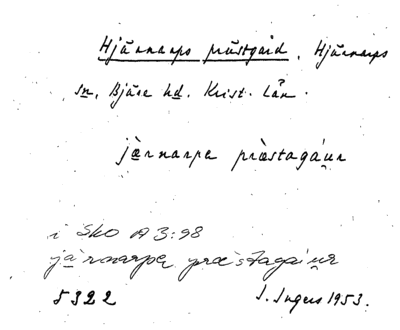 Hjärnarps prästgård, Hjärnarps
sn, Bjäre hd. Krist. län.
jæ̀rnarpe præ̀stagáur
i Sko A 3:98
jæ̀rnarpe præ̀stagáur
5322 I. Ingers 1953.